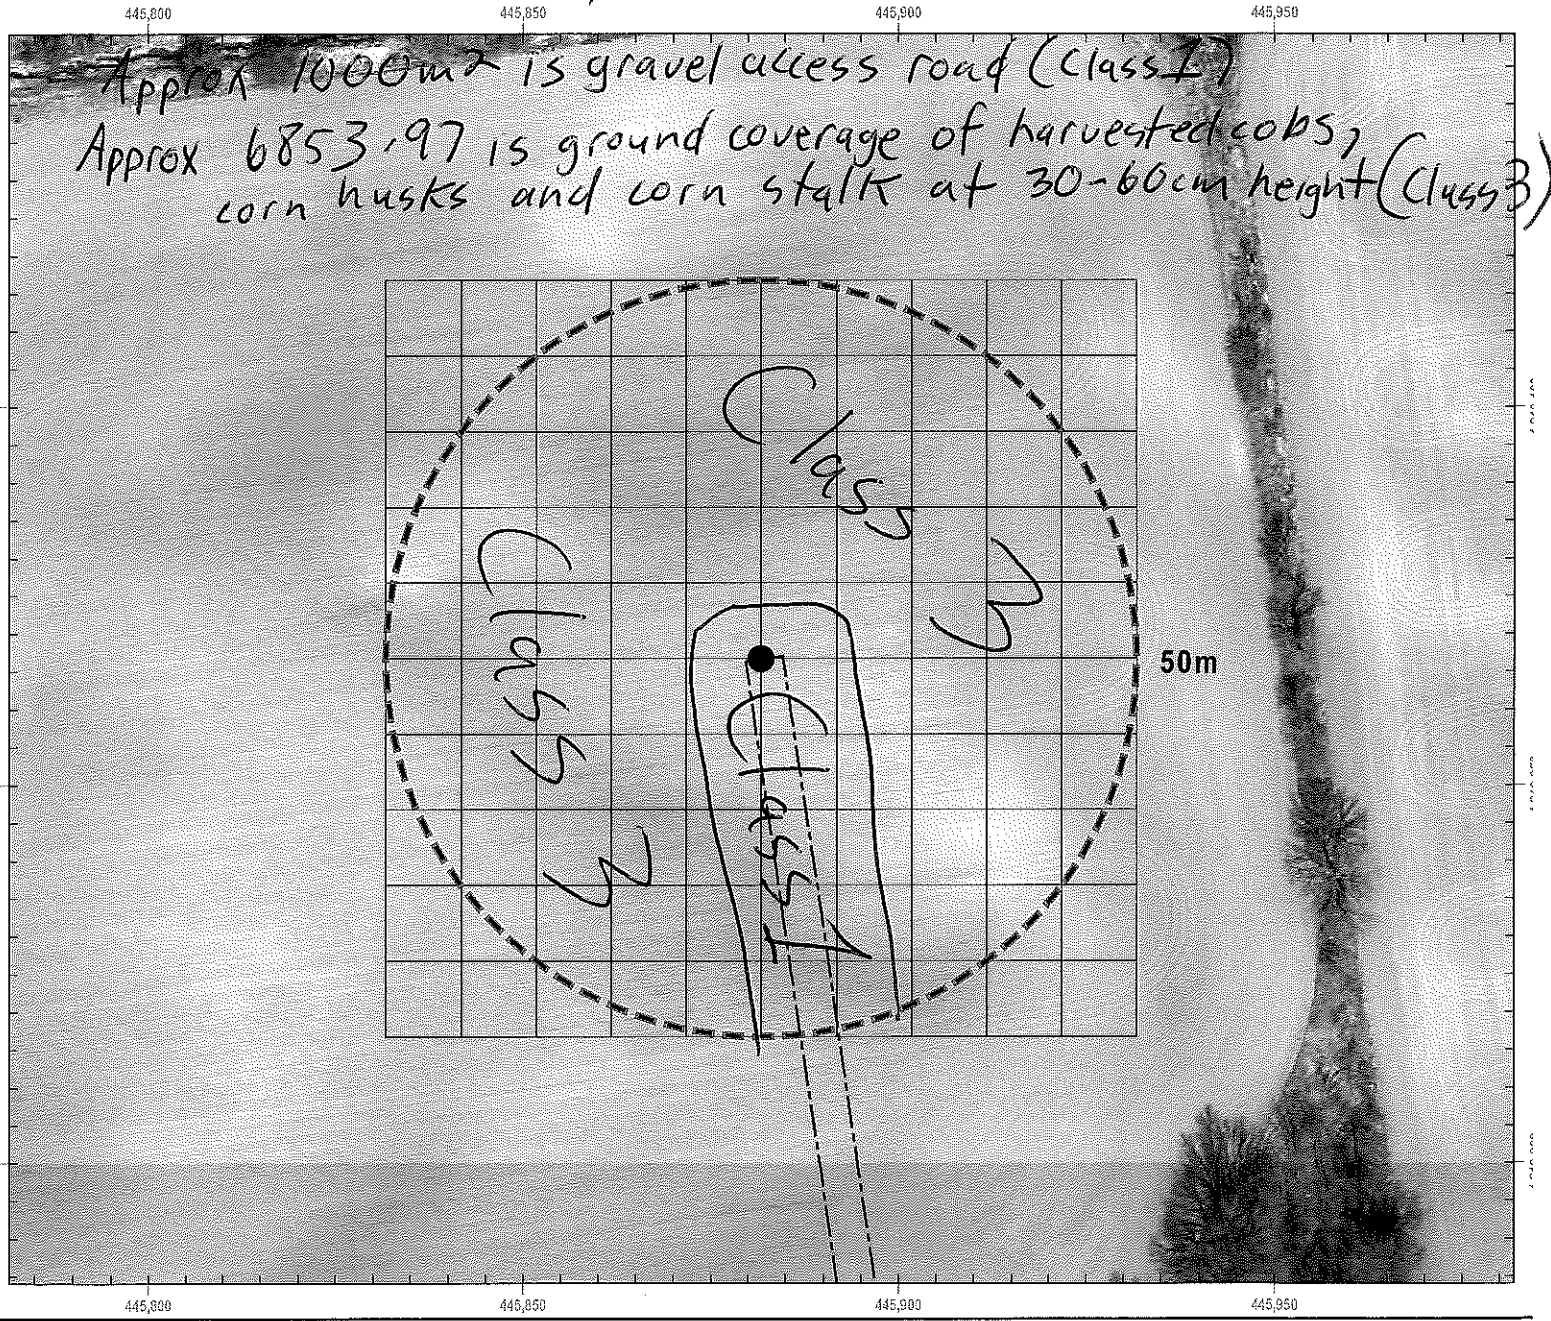 445,800 445,850 445,900 445,950
Approx 1000m2 is gravel access road (Class 1)
Approx 6853.97 is ground coverage of harvested cobs,
corn husks and corn stalk at 30-60cm height (Class 3)
Class 3
Class 3
50m
Class 1
445,800 445,850 445,900 445,950